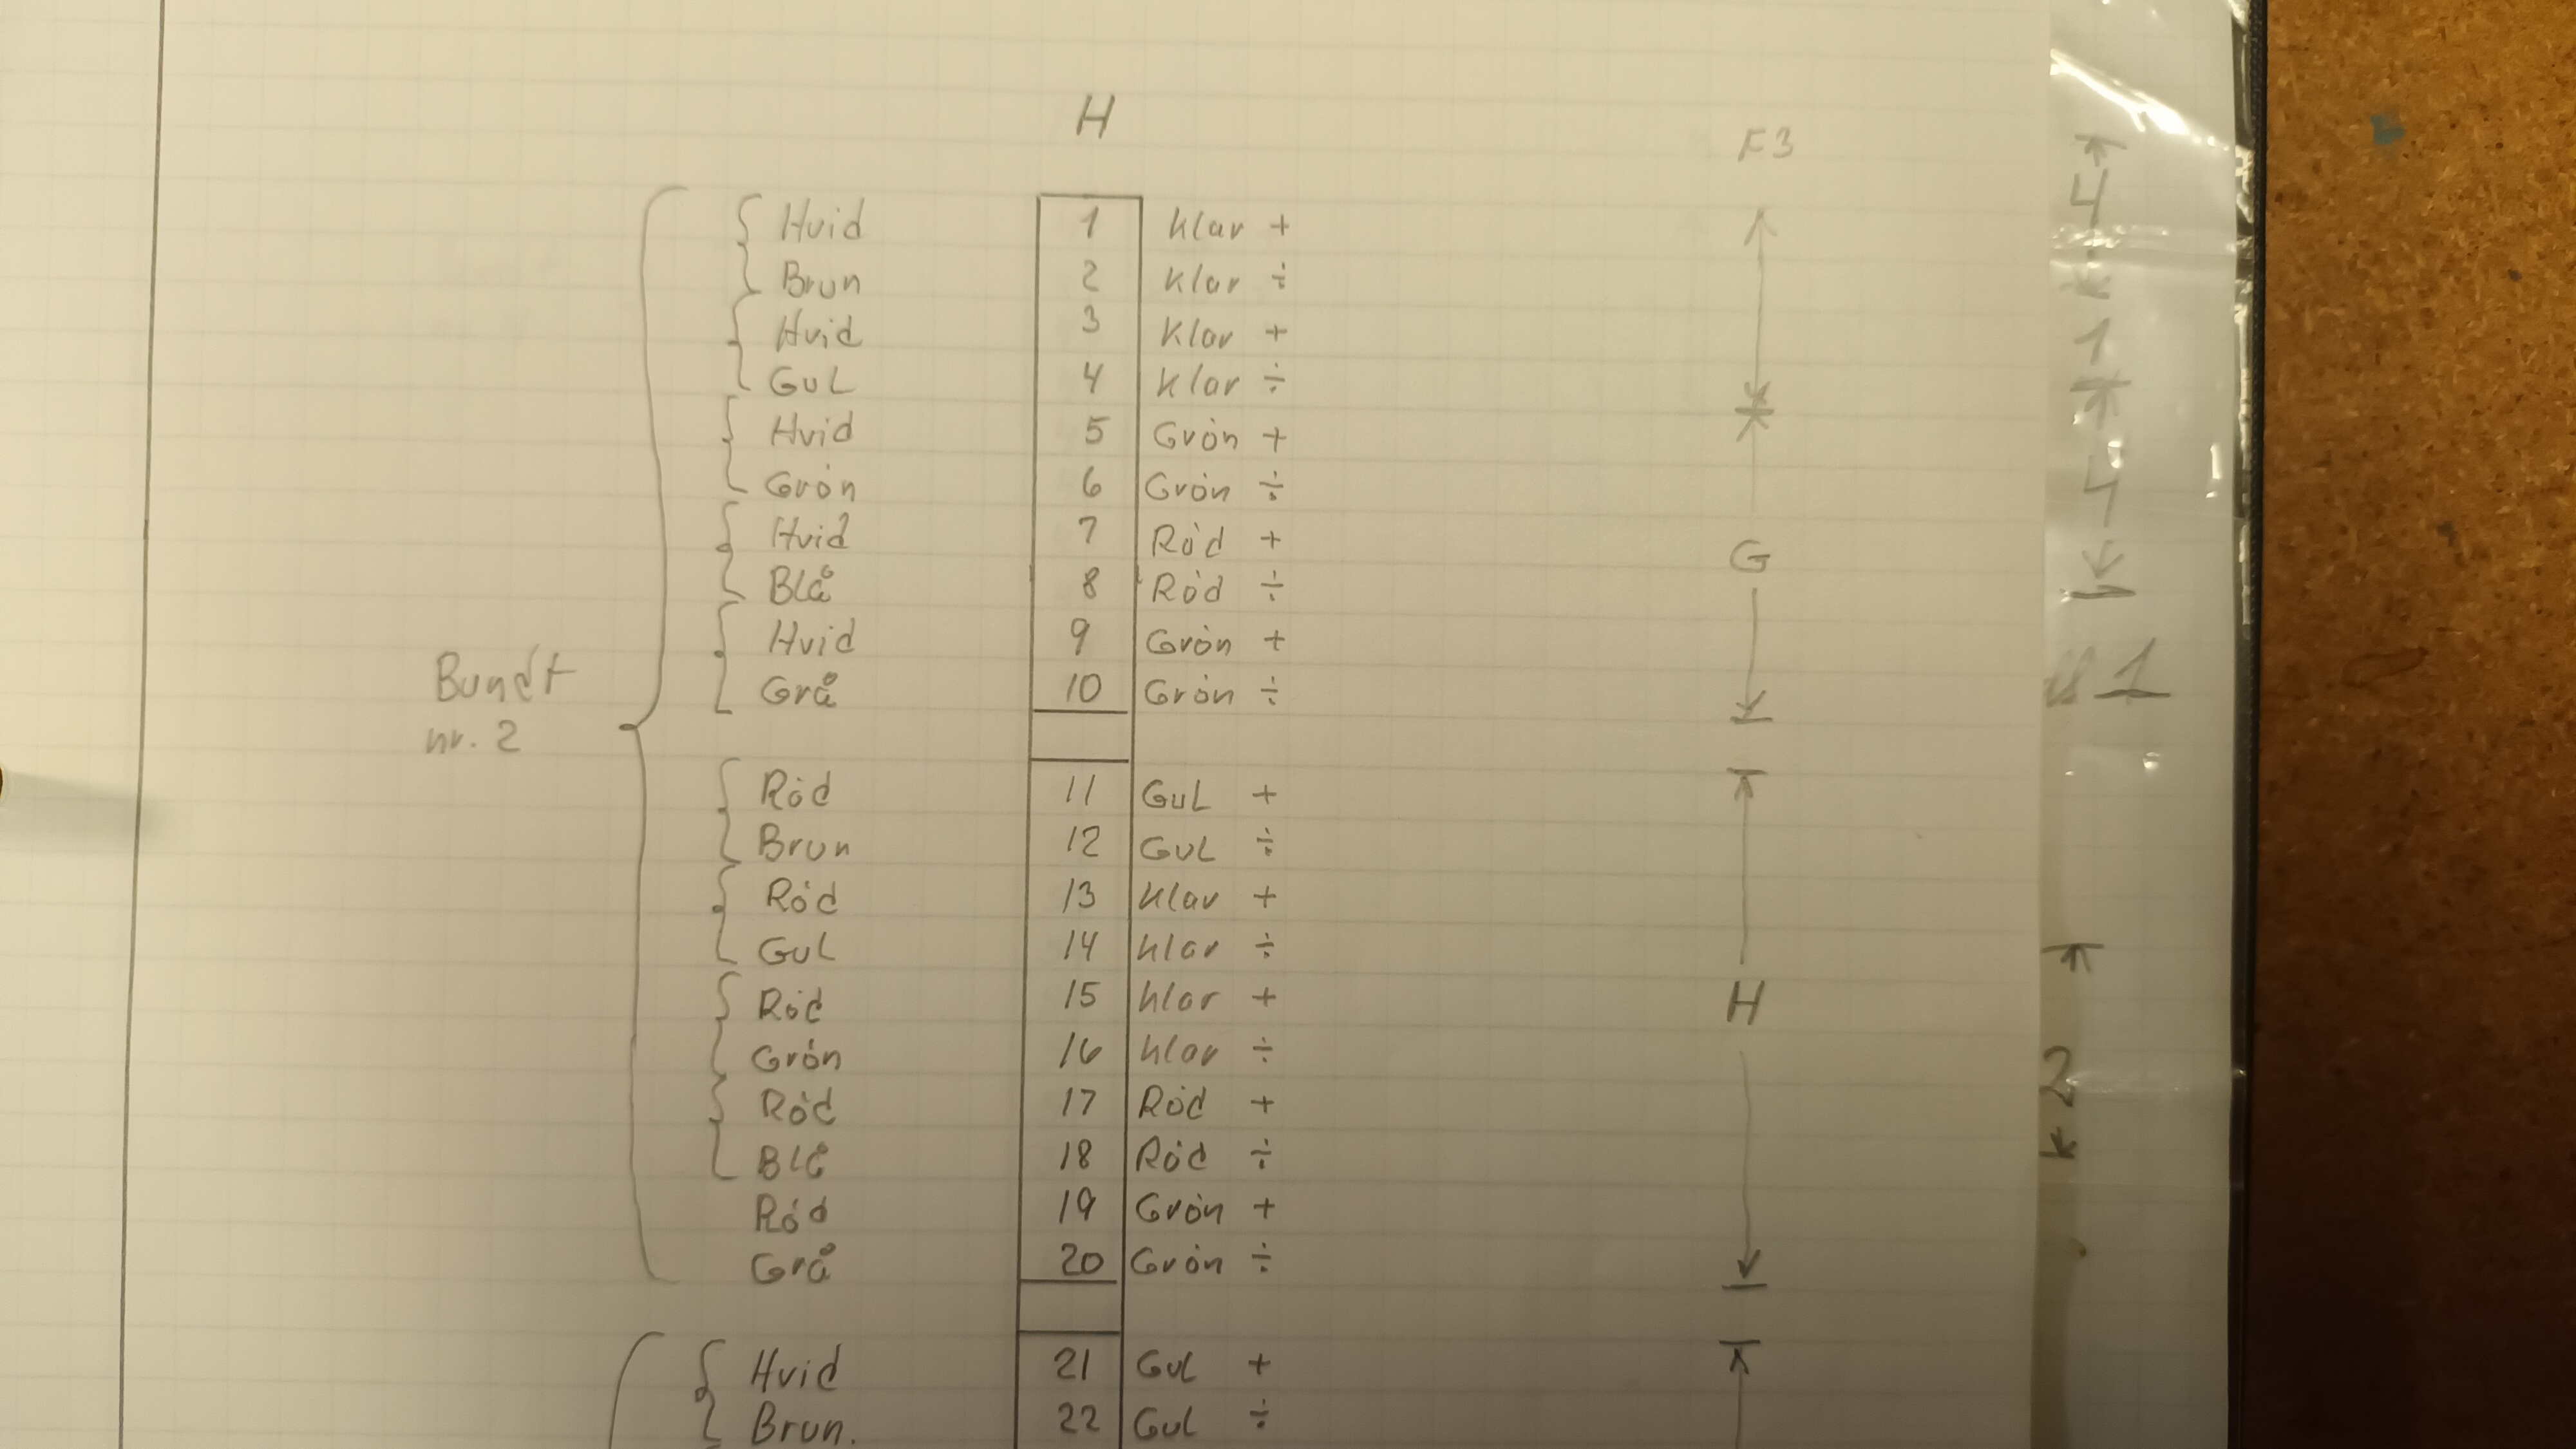 H
F3
Hvid 1 Klar +
Brun 2 Klar ÷
Hvid 3 Klar +
GuL 4 Klar ÷
Hvid 5 Grön +
Grön 6 Grön ÷
Hvid 7 Röd +
BLå 8 Röd ÷
G
Hvid 9 Grön +
Grå 10 Grön ÷
Bundt
nr. 2
Röd 11 GuL +
Brun 12 GuL ÷
Röd 13 Klar +
GuL 14 Klar ÷
Röd 15 Klar +
H
Grön 16 Klar ÷
Röd 17 Röd +
BLå 18 Röd ÷
Röd 19 Grön +
Grå 20 Grön ÷
Hvid 21 GuL +
Brun. 22 GuL ÷
1
2